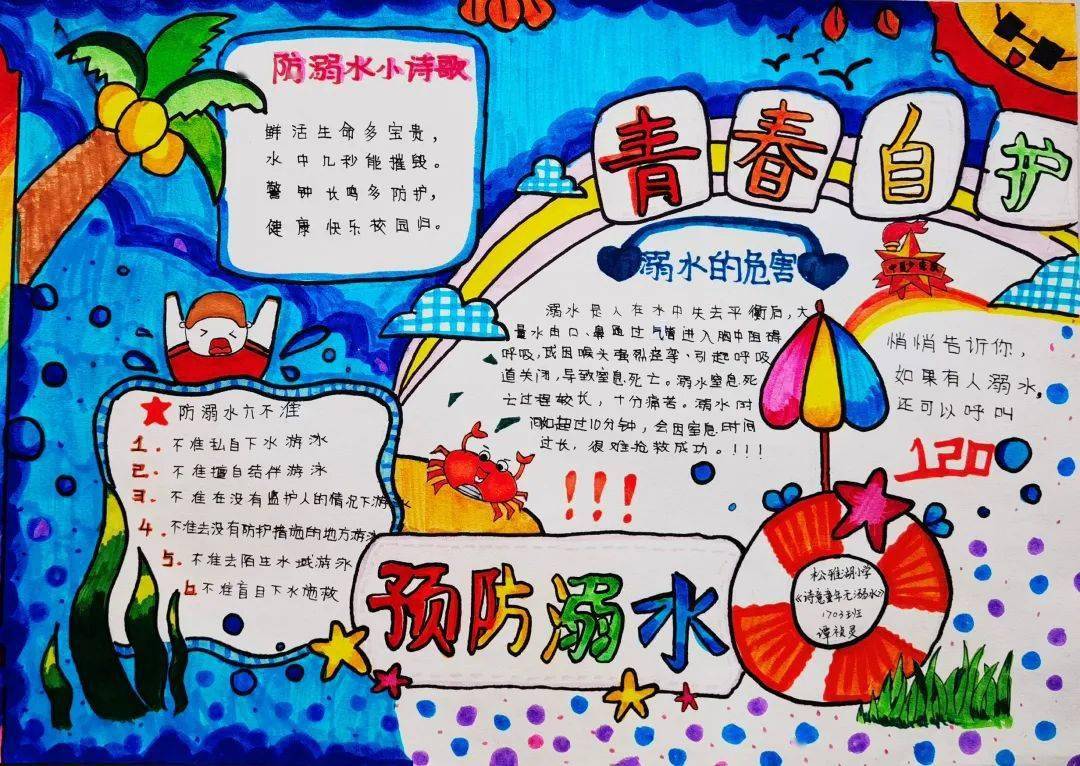 防溺水小诗歌
鲜活生命多宝贵，
水中几秒能摧毁。
警钟长鸣多防护，
健康快乐校园归。
青春自护
溺水的危害
溺水是人在水中失去平衡后，大
量水由口、鼻通过气管进入胸中阻碍
呼吸，或因喉头强烈痉挛、引起呼吸
道关闭，导致窒息死亡。溺水窒息死
亡过程较长，十分痛苦。溺水时
间如超过10分钟，会因窒息时间
过长，很难抢救成功。！！！
悄悄告诉你，
如果有人溺水，
还可以呼叫
120
！！！
防溺水六不准
1. 不准私自下水游泳
2. 不准擅自结伴游泳
3. 不准在没有监护人的情况下游泳
4. 不准去没有防护措施的地方游泳
5. 不准去陌生水域游泳
6 不准盲目下水施救
预防溺水
松雅湖小学
《诗意童年无溺水》
1703班